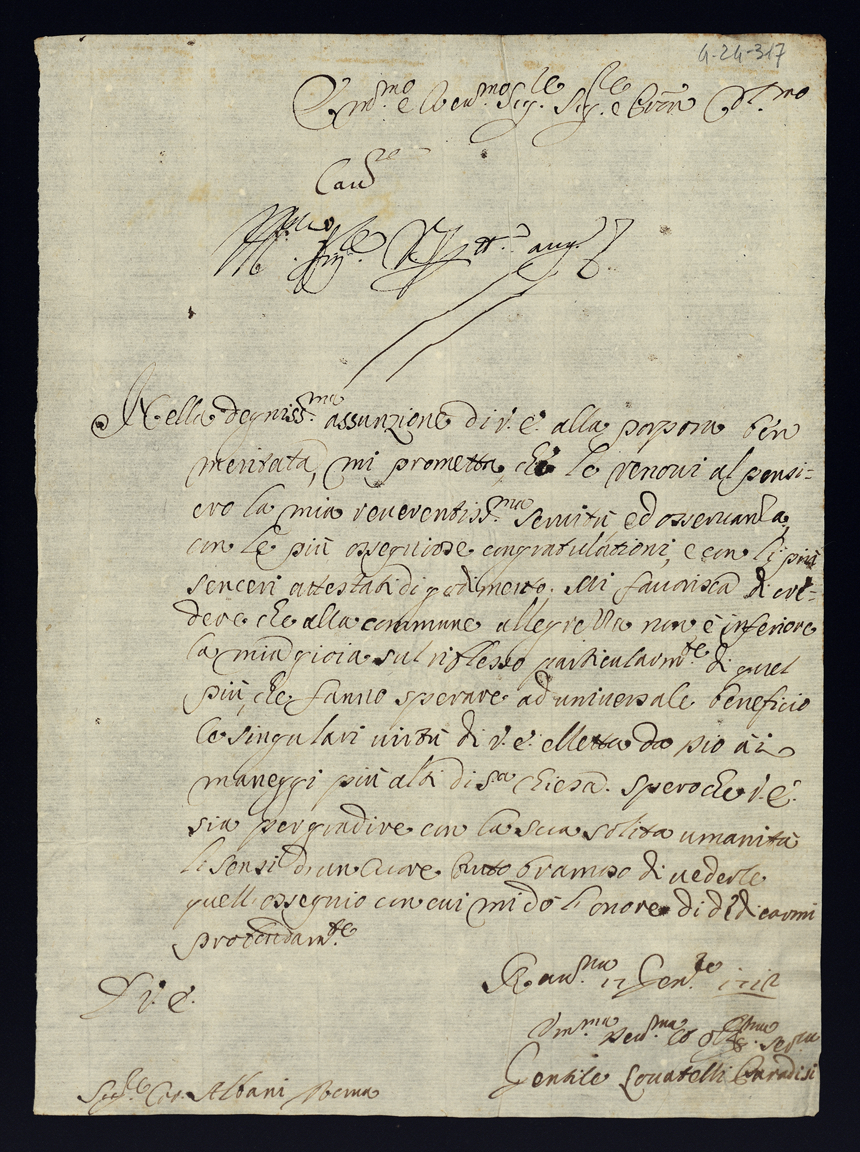 4-24-317
Em.mo e Reu.mo Sig.le Sig.le e Pron Col.mo
Nella degniss.ma assunzione di V. E. alla porpora ben
meritata, mi prometta che le renoui al pensi=
ero la mia reuerentiss.ma seruitù ed osseruanza,
con le più osseguiose congratulationi, e con li più
senceri attestati di godimento. Mi fauorisca di cre=
dere che alla commune allegrezza non è inferiore
la mia gioia sul riflesso particularm.te di quel
più, che fanno sperare ad uniuersale beneficio
le singulari uirtù di V. E. eletta da pio ai
maneggi più alti di S.a Chiesa. Spero che V. E.
sia per gradire con la sua solita umanità
li sensi d'un Cuore tutto bramoso di uederle
quell osseguio con cui mi dò l onore di dedicarmi
profondam.te
D V. E.
Rau.na 17 Gen.ro 1712
Um.ma Deu.ma ed Obl.ma Ser.ua
Gentile Louatelli Paradisi
Sig.le Car. Albani Roma